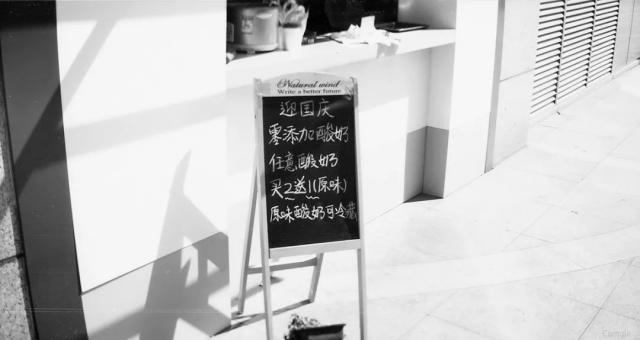 Natural wind
Write a better future
迎国庆
零添加酸奶
任意酸奶
买2送1(原味)
原味酸奶可冷藏